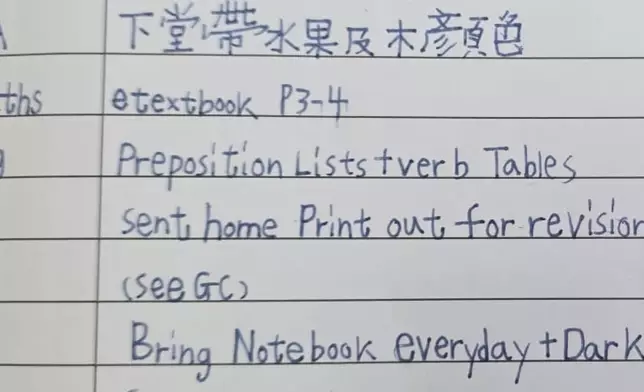 下堂帶水果及木顏色
ths etextbook P3-4
Preposition Lists + verb Tables
sent home Print out for revision
(see GC)
Bring Notebook everyday + Dark